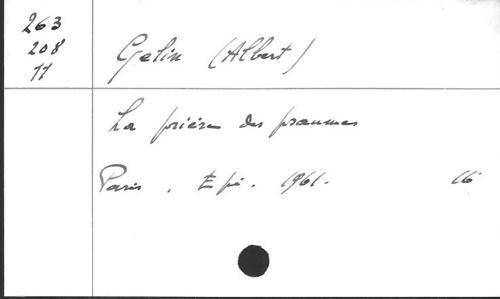 263
208
11
Gelin (Albert)
La prière des psaumes
Paris. Epi. 1961. 16